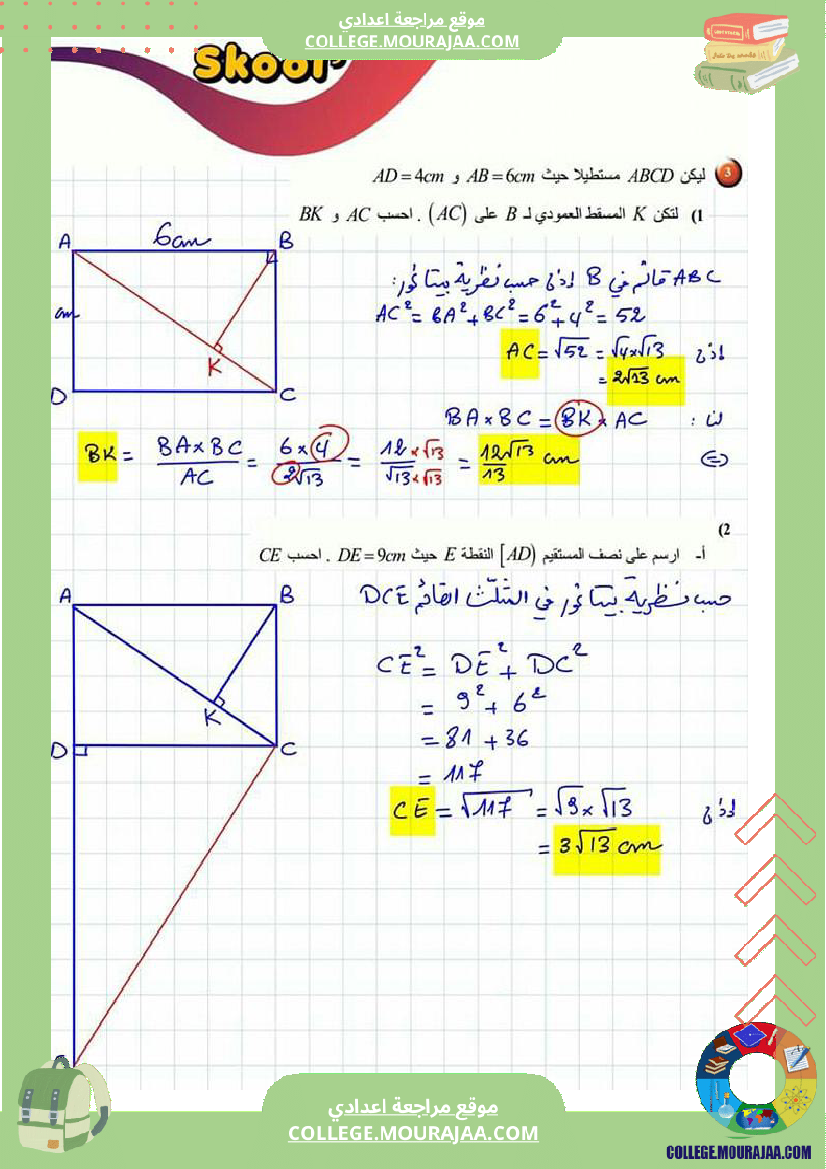 موقع مراجعة اعدادي
COLLEGE.MOURAJAA.COM
Skool
3 ليكن ABCD مستطيلا حيث AB = 6cm و AD = 4cm
1) لتكن K المسقط العمودي لـ B على (AC) . احسب AC و BK
A 6cm B
ABC قائم في B إذن حسب نظرية بيتاغور:
AC² = BA² + BC² = 6² + 4² = 52
cm
إذن AC = √52 = √4×√13
= 2√13 cm
K
D C
لنا : BA × BC = BK × AC
⇔ BK = BA×BC / AC = 6×4 / 2√13 = 12×√13 / √13×√13 = 12√13 / 13 cm
2)
أ- ارسم على نصف المستقيم [AD) النقطة E حيث DE = 9cm . احسب CE
A B
حسب نظرية بيتاغور في المثلث القائم DCE
CE² = DE² + DC²
= 9² + 6²
K
= 81 + 36
D C
= 117
إذن CE = √117 = √9×√13
= 3√13 cm
موقع مراجعة اعدادي
COLLEGE.MOURAJAA.COM
COLLEGE.MOURAJAA.COM